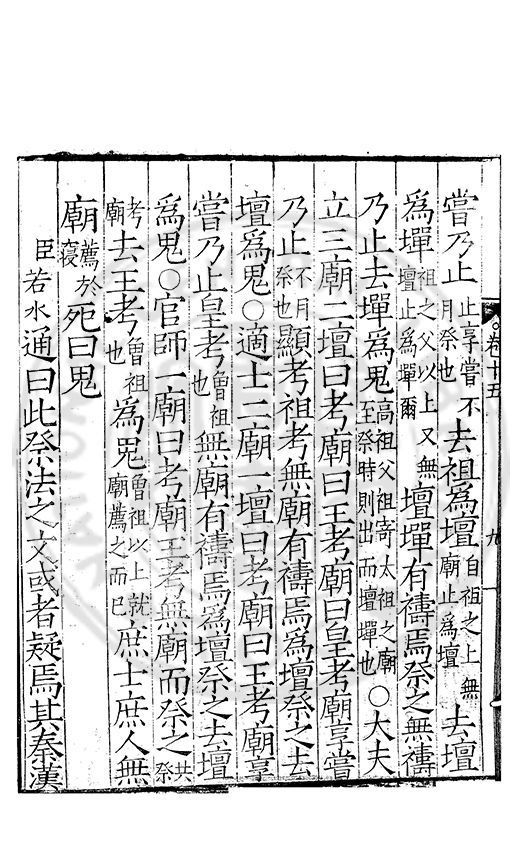 嘗乃止止享嘗不月祭也去祖爲壇自祖之上無廟止爲壇去壇
爲墠祖之父以上又無壇止爲墠爾壇墠有禱焉祭之無禱
乃止去墠爲鬼高祖父祖寄太祖之廟至祭時則出而壇墠也〇大夫
立三廟二壇曰考廟曰王考廟曰皇考廟享嘗
乃止不月祭也顯考祖考無廟有禱焉爲壇祭之去
壇爲鬼〇適士二廟一壇曰考廟曰王考廟享
嘗乃止皇考曾祖也無廟有禱焉爲壇祭之去壇
爲鬼〇官師一廟曰考廟王考無廟而祭之共祭
考廟去王考曾祖也爲鬼曾祖以上就廟薦之而已庶士庶人無
廟薦於寢死曰鬼
臣若水通曰此祭法之文或者疑焉其秦漢
卷十五
九